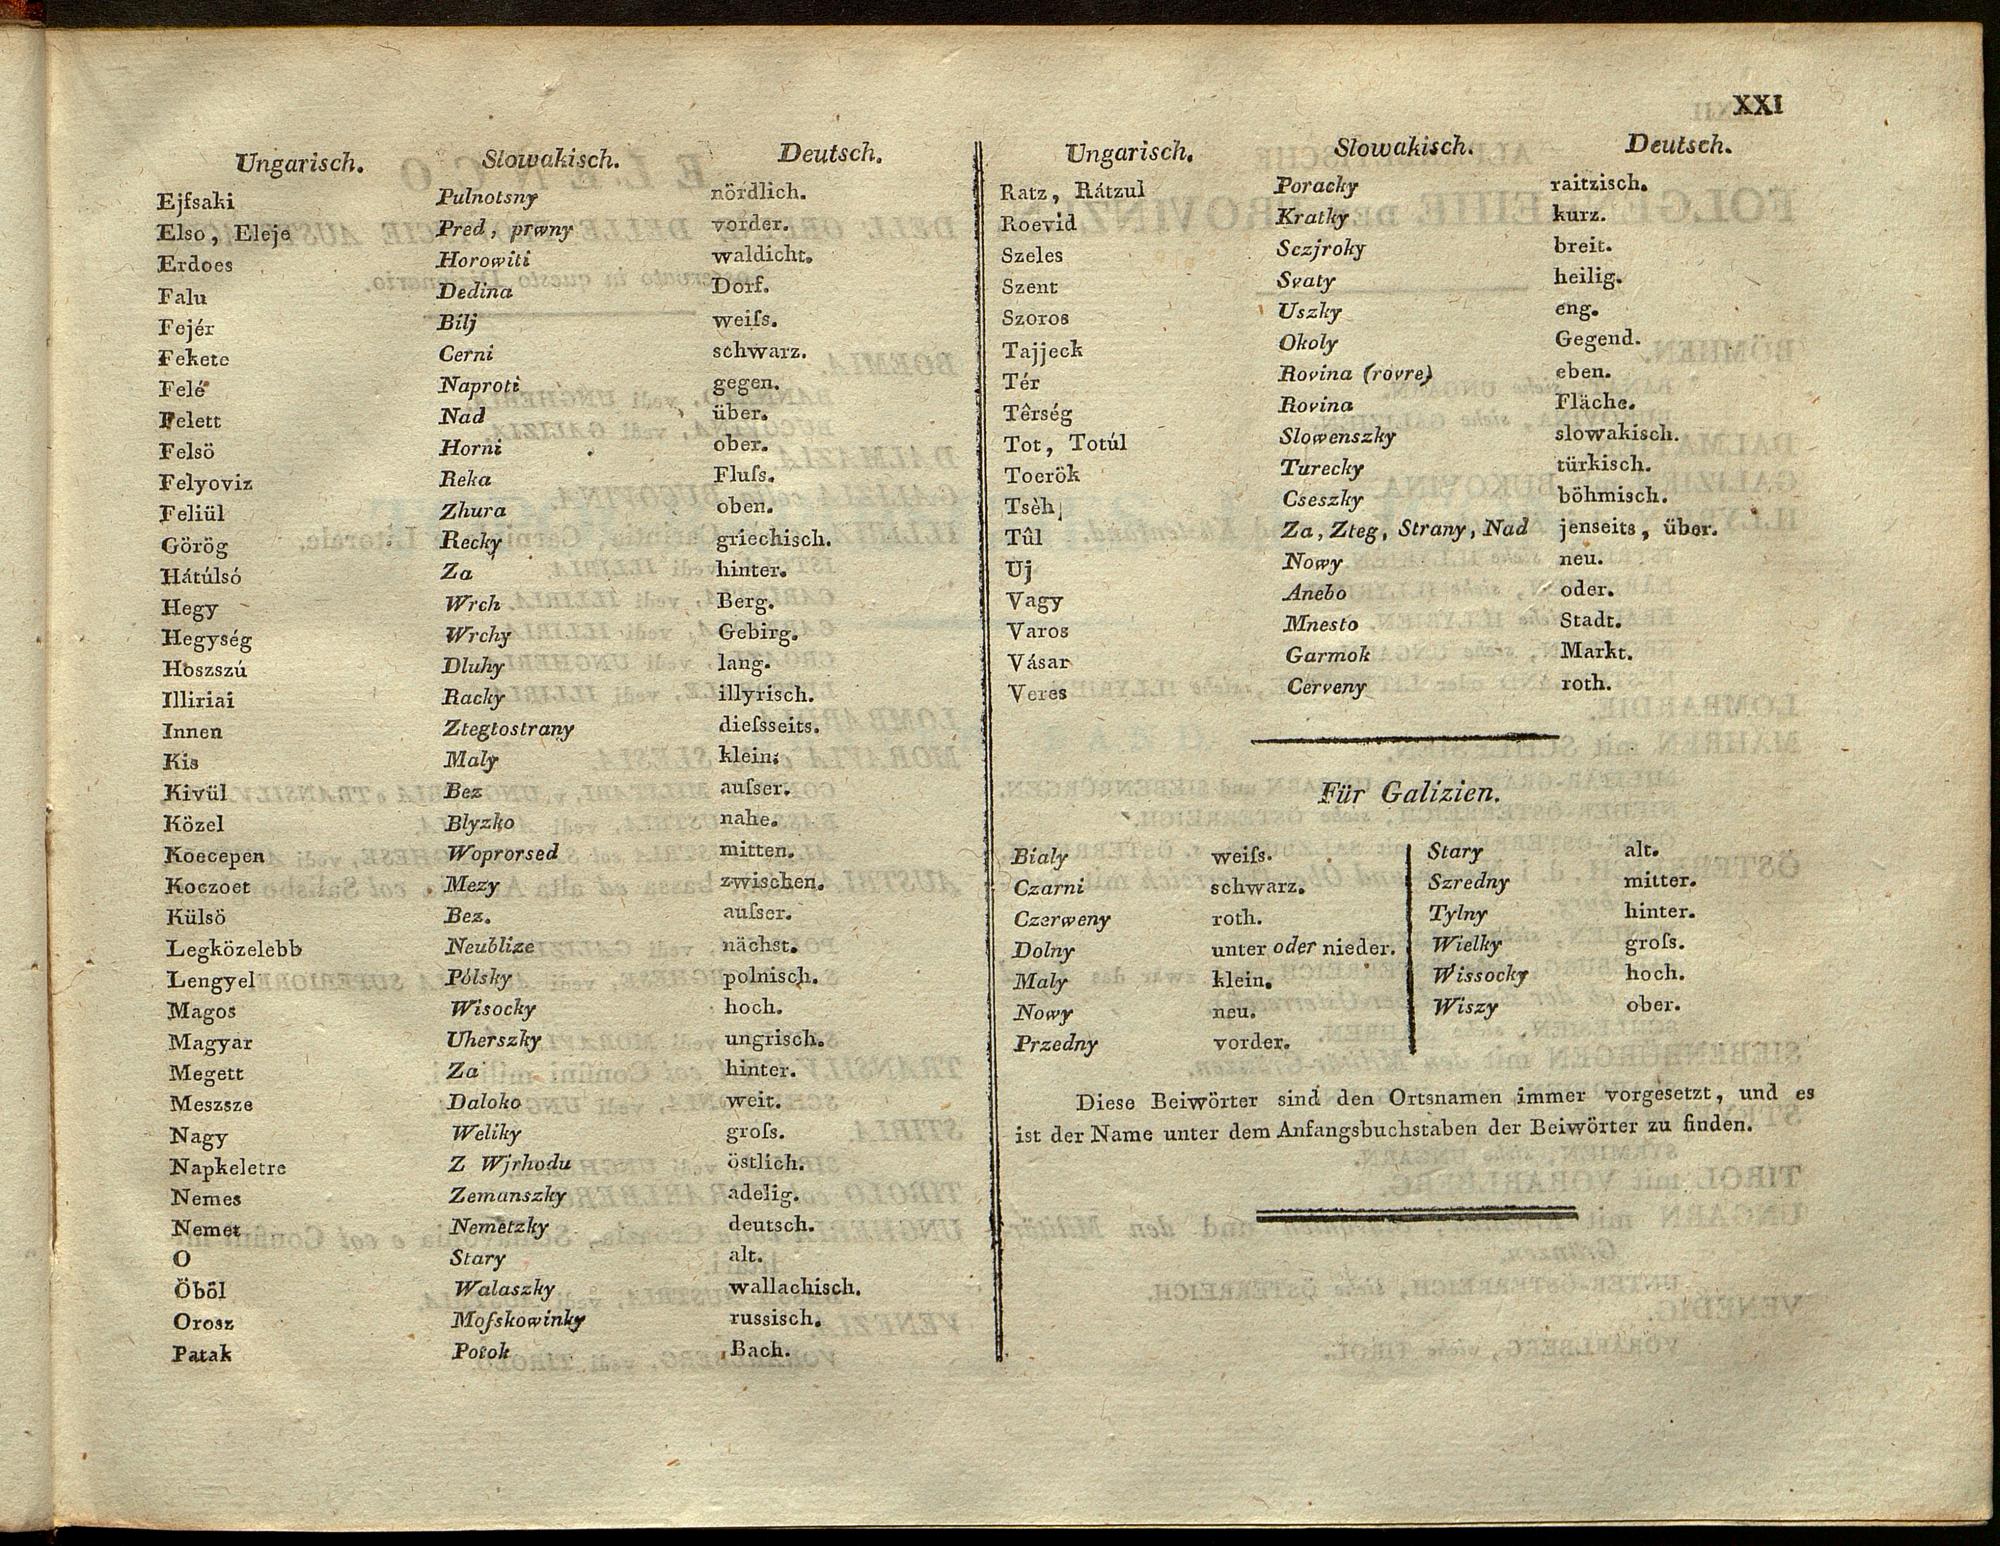 XXI
Ungarisch. Slowakisch. Deutsch.
Ejfsaki Pulnotsny nördlich.
Elso, Eleje Pred, prwny vorder.
Erdoes Horowiti waldicht.
Falu Dedina Dorf.
Fejér Bilj weiſs.
Fekete Cerni schwarz.
Felé Naproti gegen.
Felett Nad über.
Felsö Horni ober.
Felyoviz Reka Fluſs.
Feliül Zhura oben.
Görög Recky griechisch.
Hátúlsó Za hinter.
Hegy Wrch Berg.
Hegység Wrchy Gebirg.
Hoszszú Dluhy lang.
Illiriai Racky illyrisch.
Innen Ztegtostrany dieſsseits.
Kis Maly klein.
Kivül Bez auſser.
Közel Blyzko nahe.
Koecepen Woprorsed mitten.
Koczoet Mezy zwischen.
Külsö Bez. auſser.
Legközelebb Neublize nächst.
Lengyel Pólsky polnisch.
Magos Wisocky hoch.
Magyar Uherszky ungrisch.
Megett Za hinter.
Meszsze Daloko weit.
Nagy Weliky groſs.
Napkeletre Z Wjrhodu östlich.
Nemes Zemanszky adelig.
Nemet Nemetzky deutsch.
O Stary alt.
Öböl Walaszky wallachisch.
Orosz Moſskowinky russisch.
Patak Potok Bach.
Ungarisch. Slowakisch. Deutsch.
Ratz, Rátzul Poracky raitzisch.
Roevid Kratky kurz.
Szeles Sczjroky breit.
Szent Svaty heilig.
Szoros Uszky eng.
Tajjeck Okoly Gegend.
Tér Rovina (rovre) eben.
Têrség Rovina Fläche.
Tot, Totúl Slowenszky slowakisch.
Toerök Turecky türkisch.
Tsèh Cseszky böhmisch.
Tûl Za, Zteg, Strany, Nad jenseits, über.
Uj Nowy neu.
Vagy Anebo oder.
Varos Mnesto Stadt.
Vásar Garmok Markt.
Veres Cerveny roth.
Für Galizien.
Bialy weiſs.
Czarni schwarz.
Czerweny roth.
Dolny unter oder nieder.
Maly klein.
Nowy neu.
Przedny vorder.
Stary alt.
Szredny mitter.
Tylny hinter.
Wielky groſs.
Wissocky hoch.
Wiszy ober.
Diese Beiwörter sind den Ortsnamen immer vorgesetzt, und es
ist der Name unter dem Anfangsbuchstaben der Beiwörter zu finden.